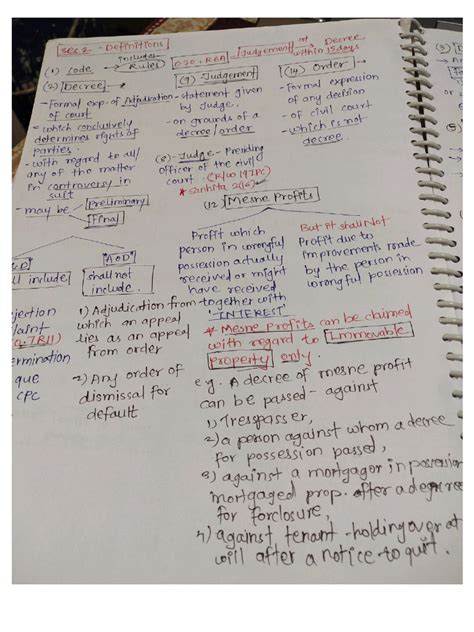 Sec. 2 - Definitions
(1) Code includes Rules
O.20 + R6A Judgement at Decree within 15 days
(2) Decree -
- Formal exp. of Adjudication of court
- which conclusively
determines rights of
parties.
- with regard to all/
any of the matter
in controversy in
suit
- may be Preliminary
Final
AOD
ll include
shall not
include.
jection
laint
rmination
que
CPC
1) Adjudication from
which an appeal
lies as an appeal
from order
2) Any order of
dismissal for
default
(9) Judgement
- statement given
by Judge.
- on grounds of a
decree/order
(8) - Judge - Presiding
officer of the civil
court. (R/w 19 IPC)
* Sinhita 2(16)
(14) Order -
- formal expression
of any decision
- of civil court
- which is not
decree.
(12) Mesne Profits
Profit which
person in wrongful
possession actually
received or might
have received
together with
INTEREST
But it shall Not
Profit due to
improvements made
by the person in
wrongful possession
* Mesne Profits can be claimed
with regard to Immovable
Property only
e.g. A decree of mesne profit
can be passed - against
1) Tresspasser,
2) a person against whom a decree
for possession passed,
3) against a mortgagor in possession
mortgaged prop. after a degree
for forclosure,
4) against tenant - holding over at
will after a notice to quit.